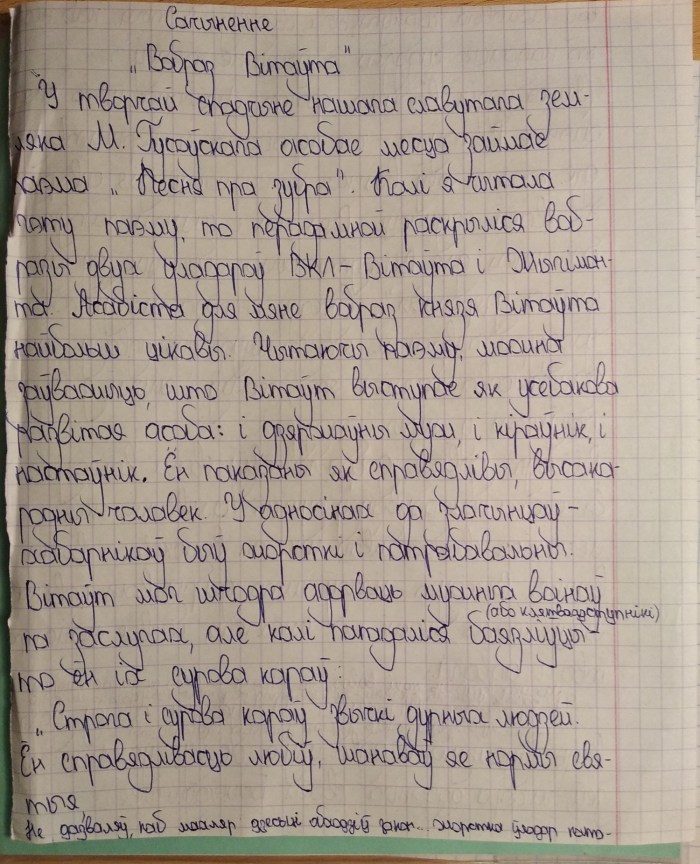 Сачыненне
„Вобраз Вітаўта"
У творчай спадчыне нашага славутага зем-
ляка М. Гусоўскага асобае месца займае
паэма „Песня пра зубра". Калі я чытала
гэту паэму, то перада мной раскрыліся воб-
разы двух уладароў ВКЛ – Вітаўта і Жыгімон-
та. Асабіста для мяне вобраз князя Вітаўта
найбольш цікавы. Чытаючы паэму, можна
заўважыць, што Вітаўт выступае як усебакова
развітая асоба: і дзяржаўны муж, і кіраўнік, і
настаўнік. Ён паказаны як справядлівы, высака-
родны чалавек. У адносінах да злачынцаў –
хабарнікаў быў жорсткі і патрабавальны.
Вітаўт мог шчодра адорваць мужных воінаў
па заслугах, але калі пападаліся баязліўцы (або клятваадступнікі)
то ён іх сурова караў:
„Строга і сурова караў звычкі дурных людзей.
Ён справядлівасць любіў, шанаваў яе нормы свя-
тыя,
Не дазваляў, каб махляр дзесьці абыходзіў закон...